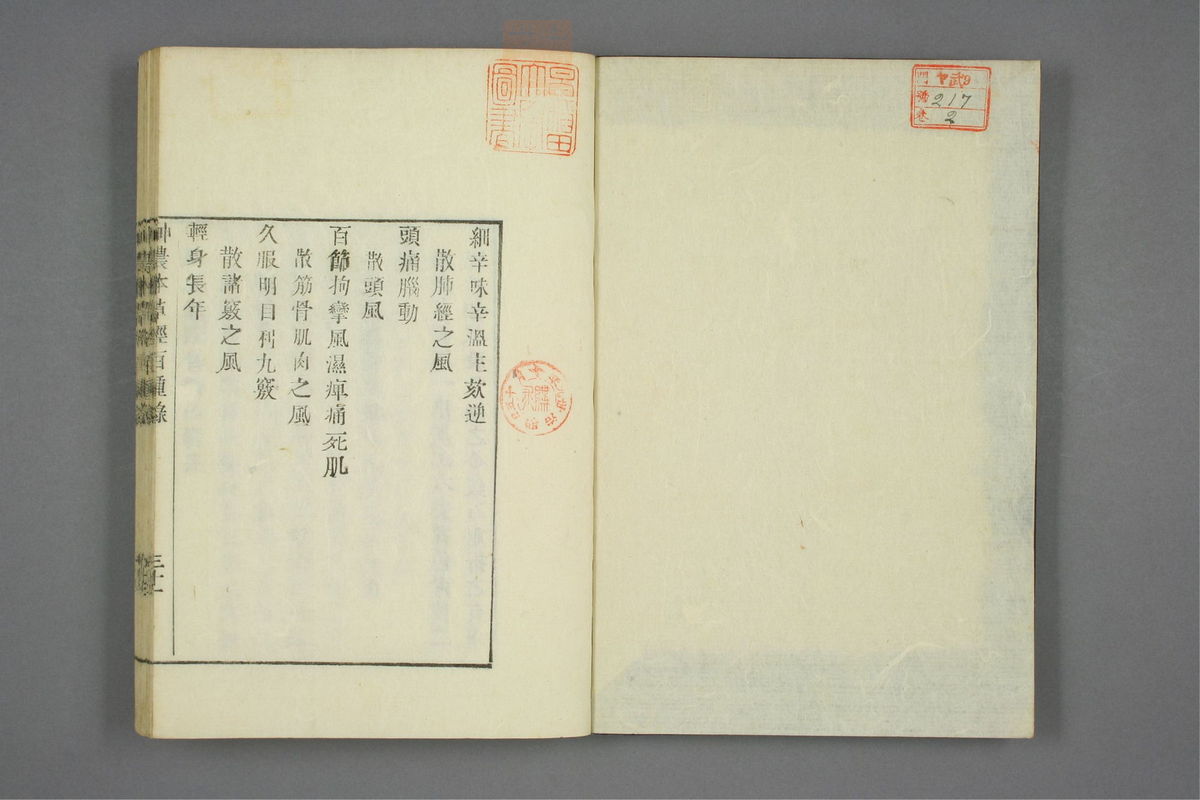 門
號 217
卷 2
細辛味辛溫主欬逆
散肺經之風
頭痛腦動
散頭風
百節拘攣風濕痺痛死肌
散筋骨肌肉之風
久服明目利九竅
散諸竅之風
輕身長年
神農本草經百種錄
三十一